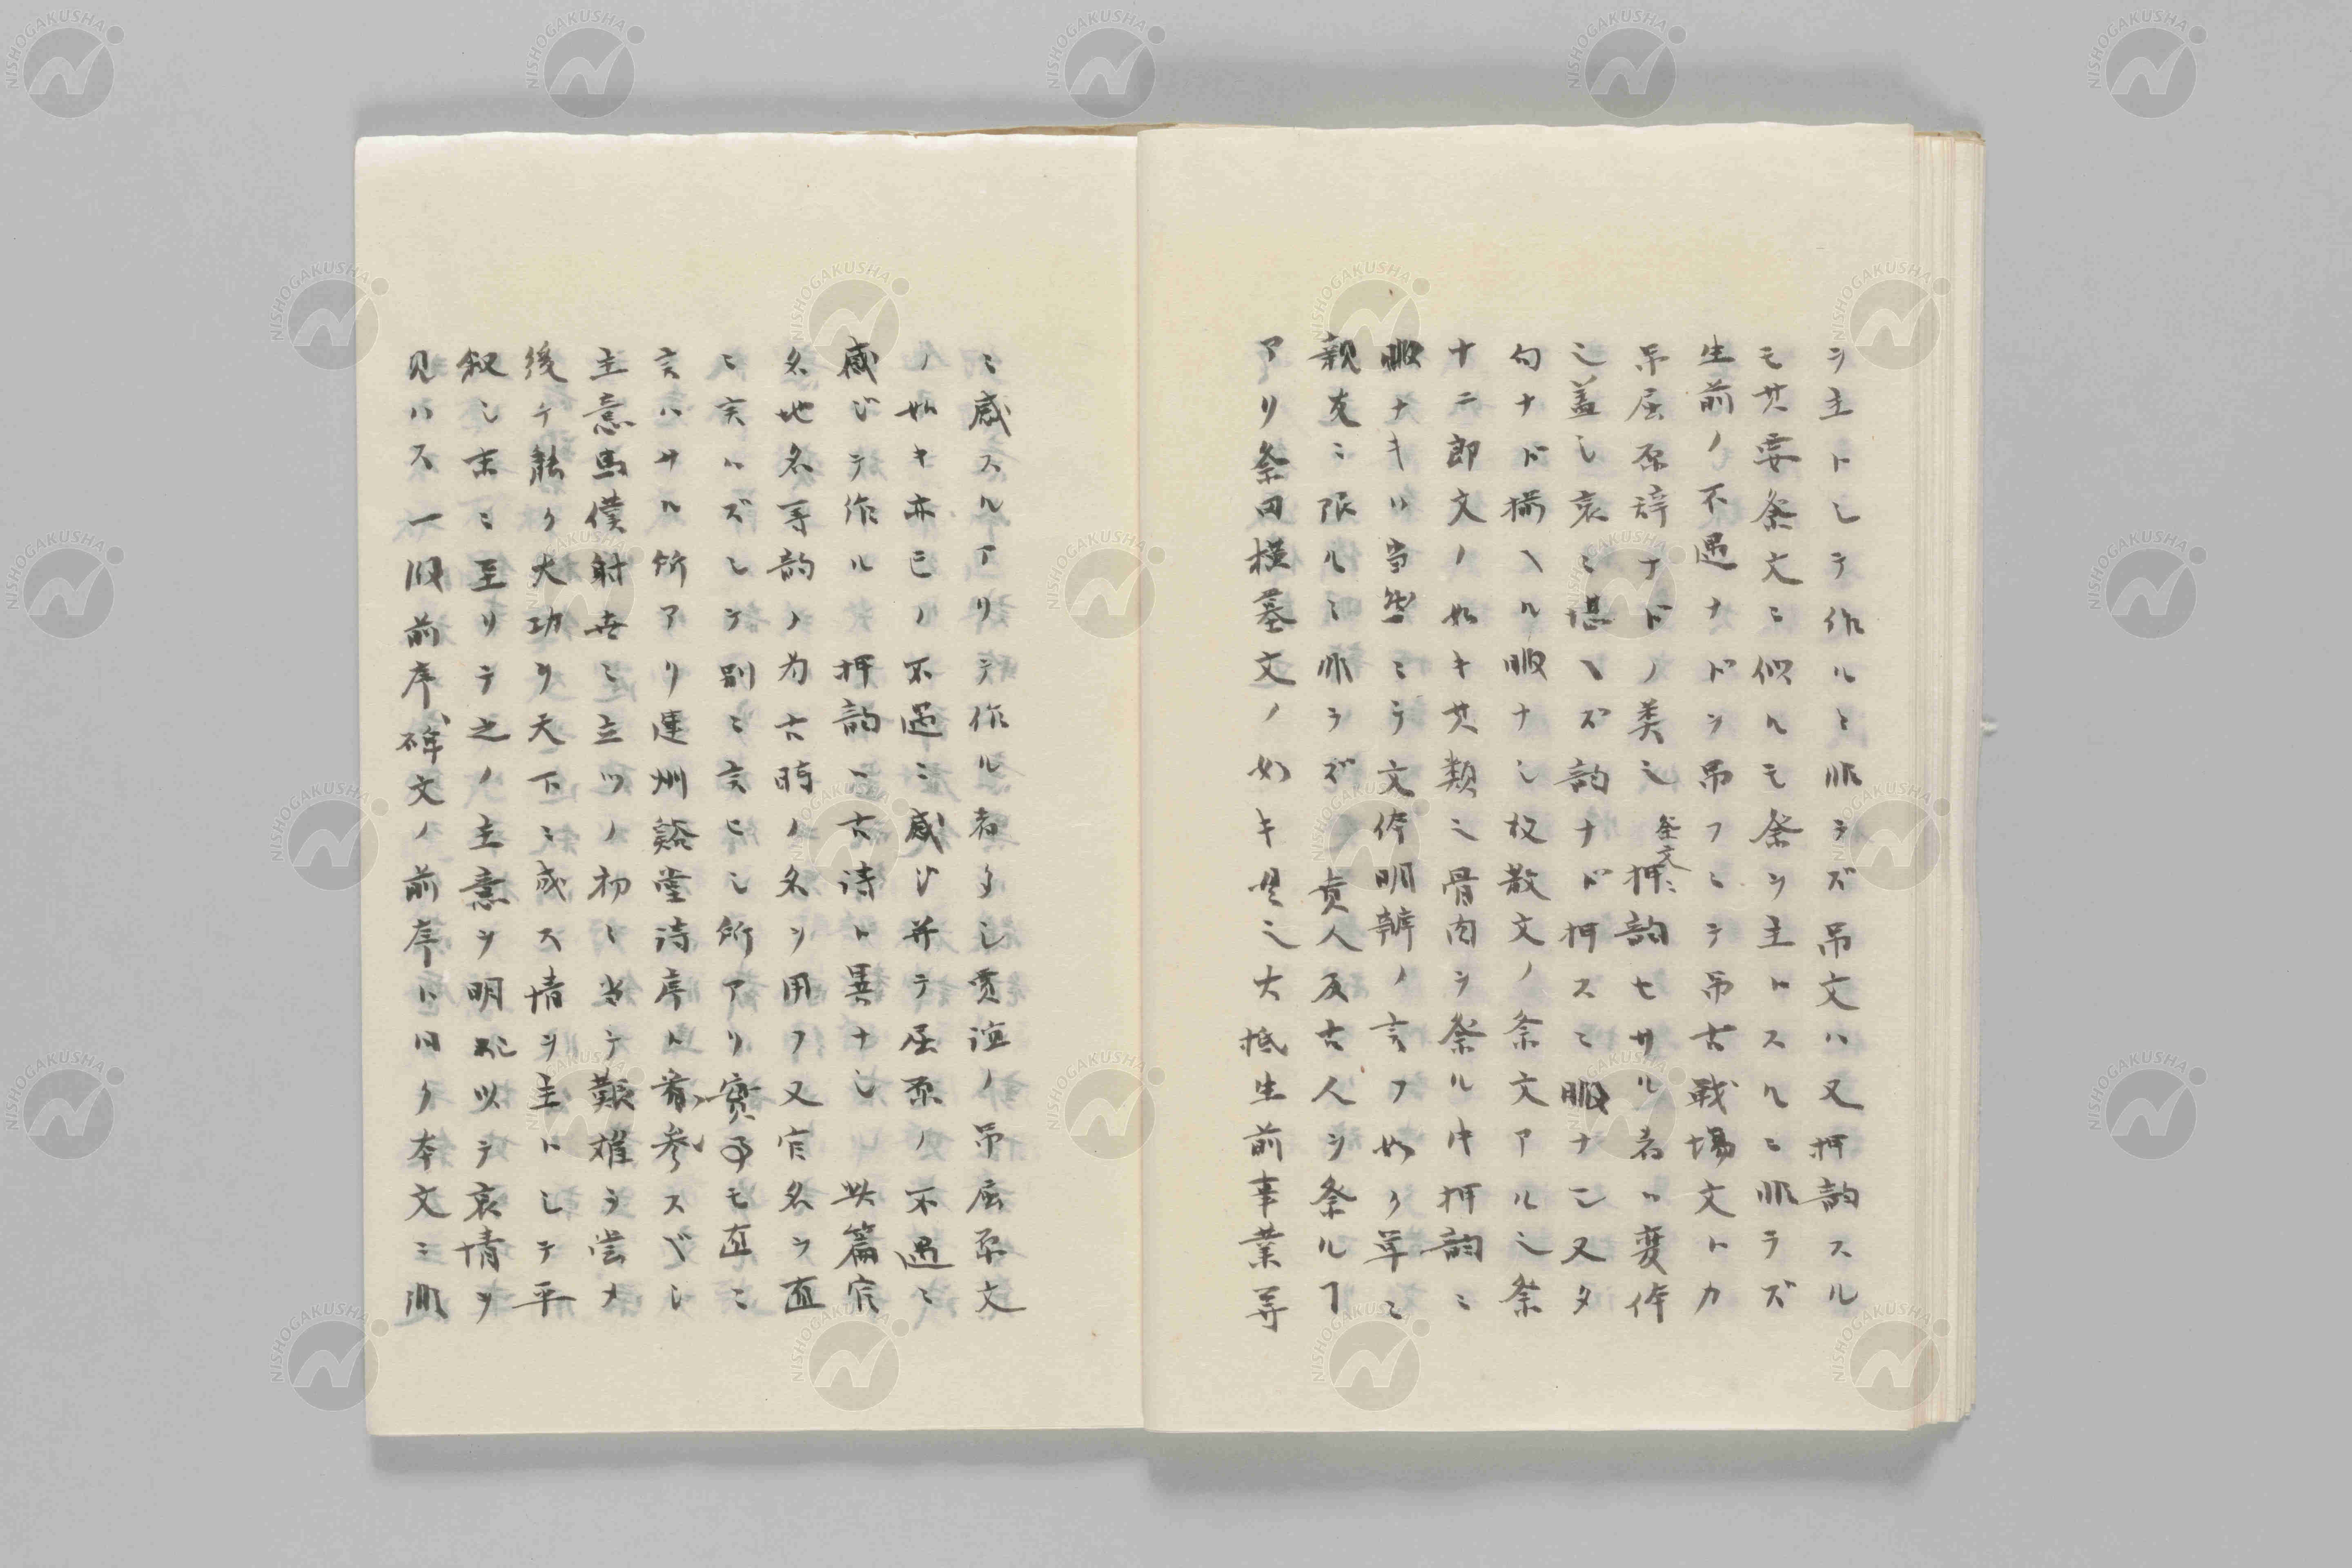 ヲ主トシテ作ルニ非ラズ吊文ハ又押韵スル
モ其要祭文ニ似ルモ祭ヲ主トスルニ非ラズ
生前ノ不遇ナドヲ吊フニテ吊古戦場文トカ
吊屈原辞ナドノ类也祭文ニ押韵セサル者ハ変体
也盖シ哀ニ堪ヘズ韵ナド押スニ暇ナシ又タ
句ナド揃ヘル暇ナシ故散文ノ祭文アル也祭
十二郎文ノ如キ其類也骨肉ヲ祭ル中押韵ニ
暇ナキハ当然ニテ文体明辨ノ言フ如ク单ニ
親友ニ限ルニ非ラズ貴人及古人ヲ祭ルヿ
アリ祭田横墓文ノ如キ是也大抵生前事業等
ニ感スルアリテ作ル者多シ賈誼ノ吊屈原文
ノ如キ亦已ノ不遇ニ感ジ并テ屈原ノ不遇ニ
感ジテ作ル押韵ハ古詩ト異ナシ 此篇官
名地名等韵ノ为古時ノ名ヲ用フ又官名ヲ直
ニ実ハズシテ別ニ言ヒシ所アリ實事モ直ニ
言ハサル所アリ連州谿堂詩序ト育参スベシ
主意馬僕射喜ニ立ツノ初ニ当テ艱难ヲ嘗メ
後チ能ク大功ヲ天下ニ成ス情ヲ主トシテ平
叙シ末ニ至リテ之ノ主意ヲ明記以テ哀情ヲ
見ハス一段前序、碑文ノ前序ト同ク本文ニ順